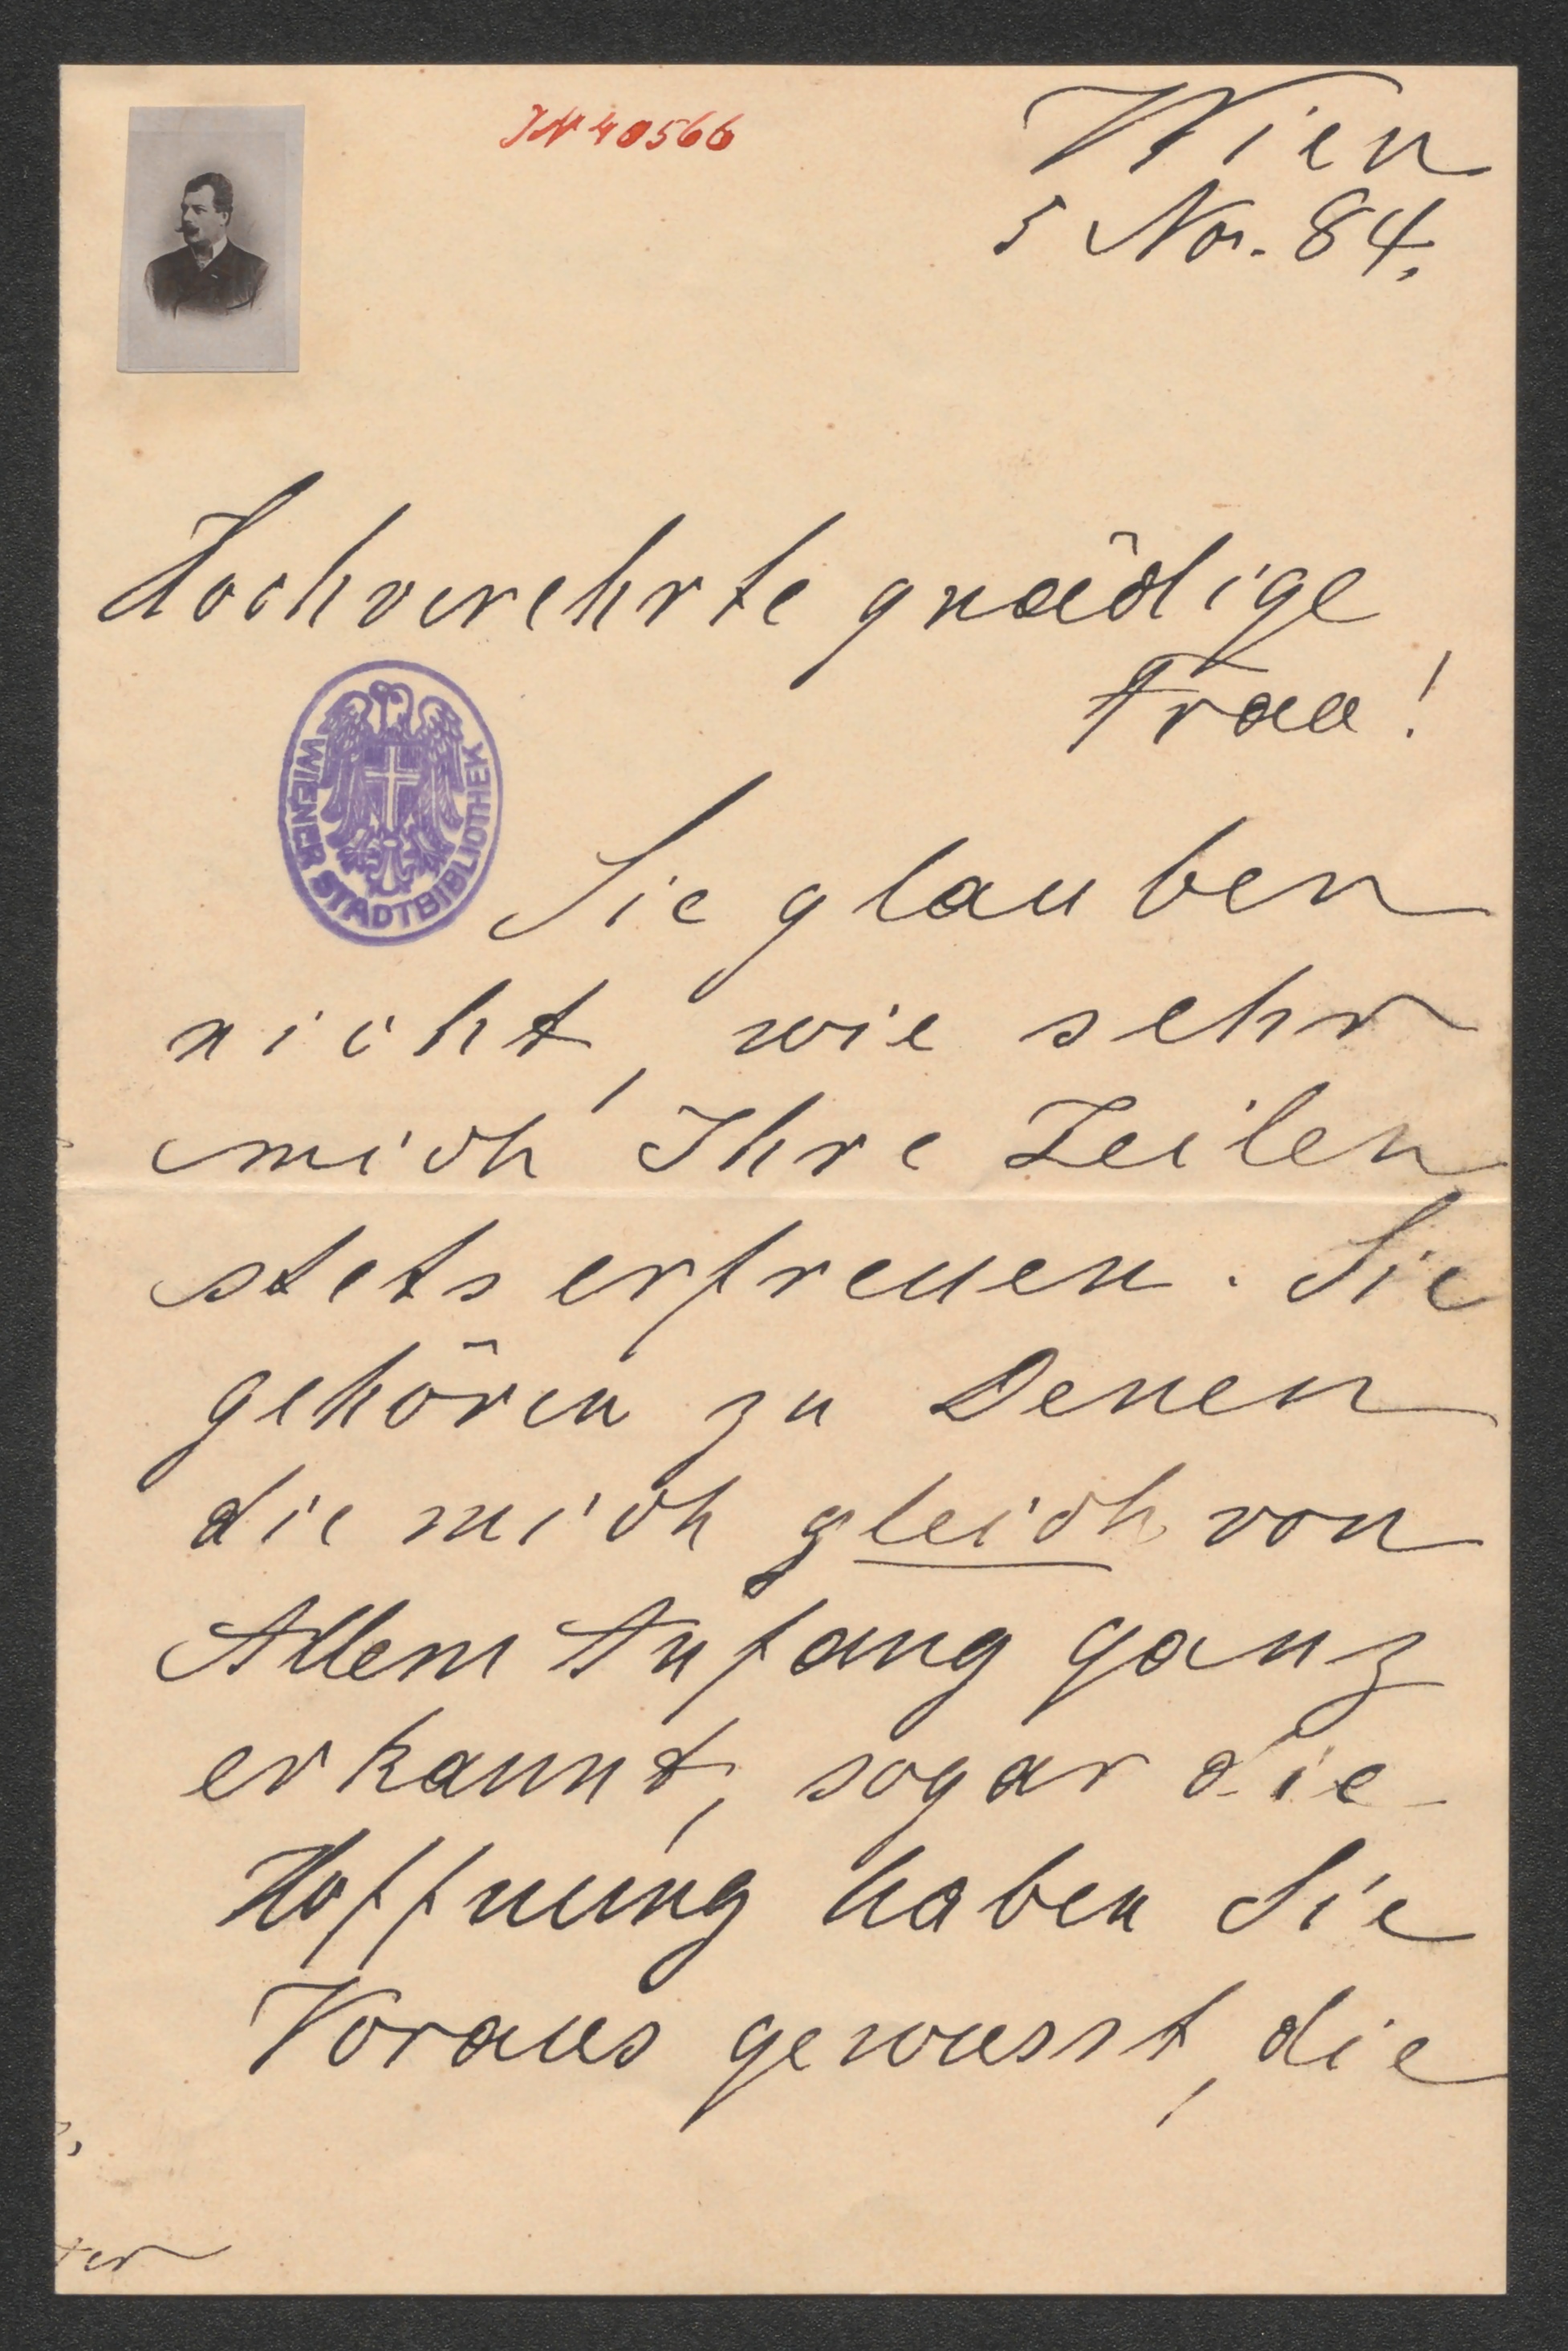 IN 40566
Wien
5 Nov. 84.
Hochverehrte gnädige
Frau!
WIENER STADTBIBLIOTHEK
Sie glauben
nicht, wie sehr
mich Ihre Zeilen
stets erfreuen. Sie
gehören zu Denen
die mich gleich von
Allem Anfang ganz
erkannt, sogar die
Hoffnung haben Sie
Voraus gewusst, die